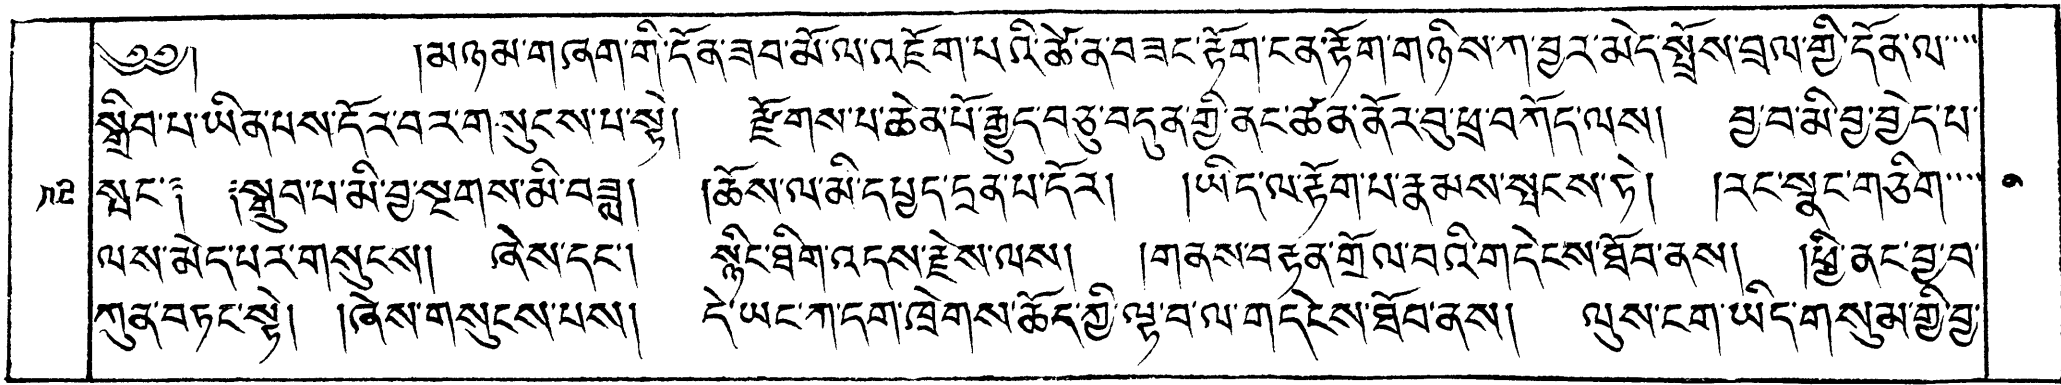 ༄༅། །མཉམ་གཞག་གི་དོན་ཟབ་མོ་ལ་འཇོག་པའི་ཚེ་ན་བཟང་རྟོག་ངན་རྟོག་གཉིས་ཀ་བྱར་མེད་སྤྲོས་བྲལ་གྱི་དོན་ལ་
སྒྲིབ་པ་ཡིན་པས་དོར་བར་གསུངས་པ་སྟེ། རྫོགས་པ་ཆེན་པོ་རྒྱུད་བཅུ་བདུན་གྱི་ནང་ཚན་ནོར་བུ་ཕྲ་བཀོད་ལས། བྱ་བ་མི་བྱ་བྱེད་པ་
སྤང་༔ ༔སྒྲུབ་པ་མི་བྱ་སྔགས་མི་བཟླ། །ཆོས་ལ་མི་དཔྱད་དྲན་པ་དོར། །ཡིད་ལ་རྟོག་པ་རྣམས་སྤངས་ཏེ། །རང་སྣང་གཅིག་
ལས་མེད་པར་གསུངས། ཞེས་དང་། སྙིང་ཐིག་འདས་རྗེས་ལས། །གནས་བརྟན་གྲོལ་བའི་གདེངས་ཐོབ་ནས། །ཕྱི་ནང་བྱ་བ་
ཀུན་བཏང་སྟེ། །ཞེས་གསུངས་པས། དེ་ཡང་ཀ་དག་ཁྲེགས་ཆོད་ཀྱི་ལྟ་བ་ལ་གདེངས་ཐོབ་ནས། ལུས་ངག་ཡིད་གསུམ་གྱི་བྱ་